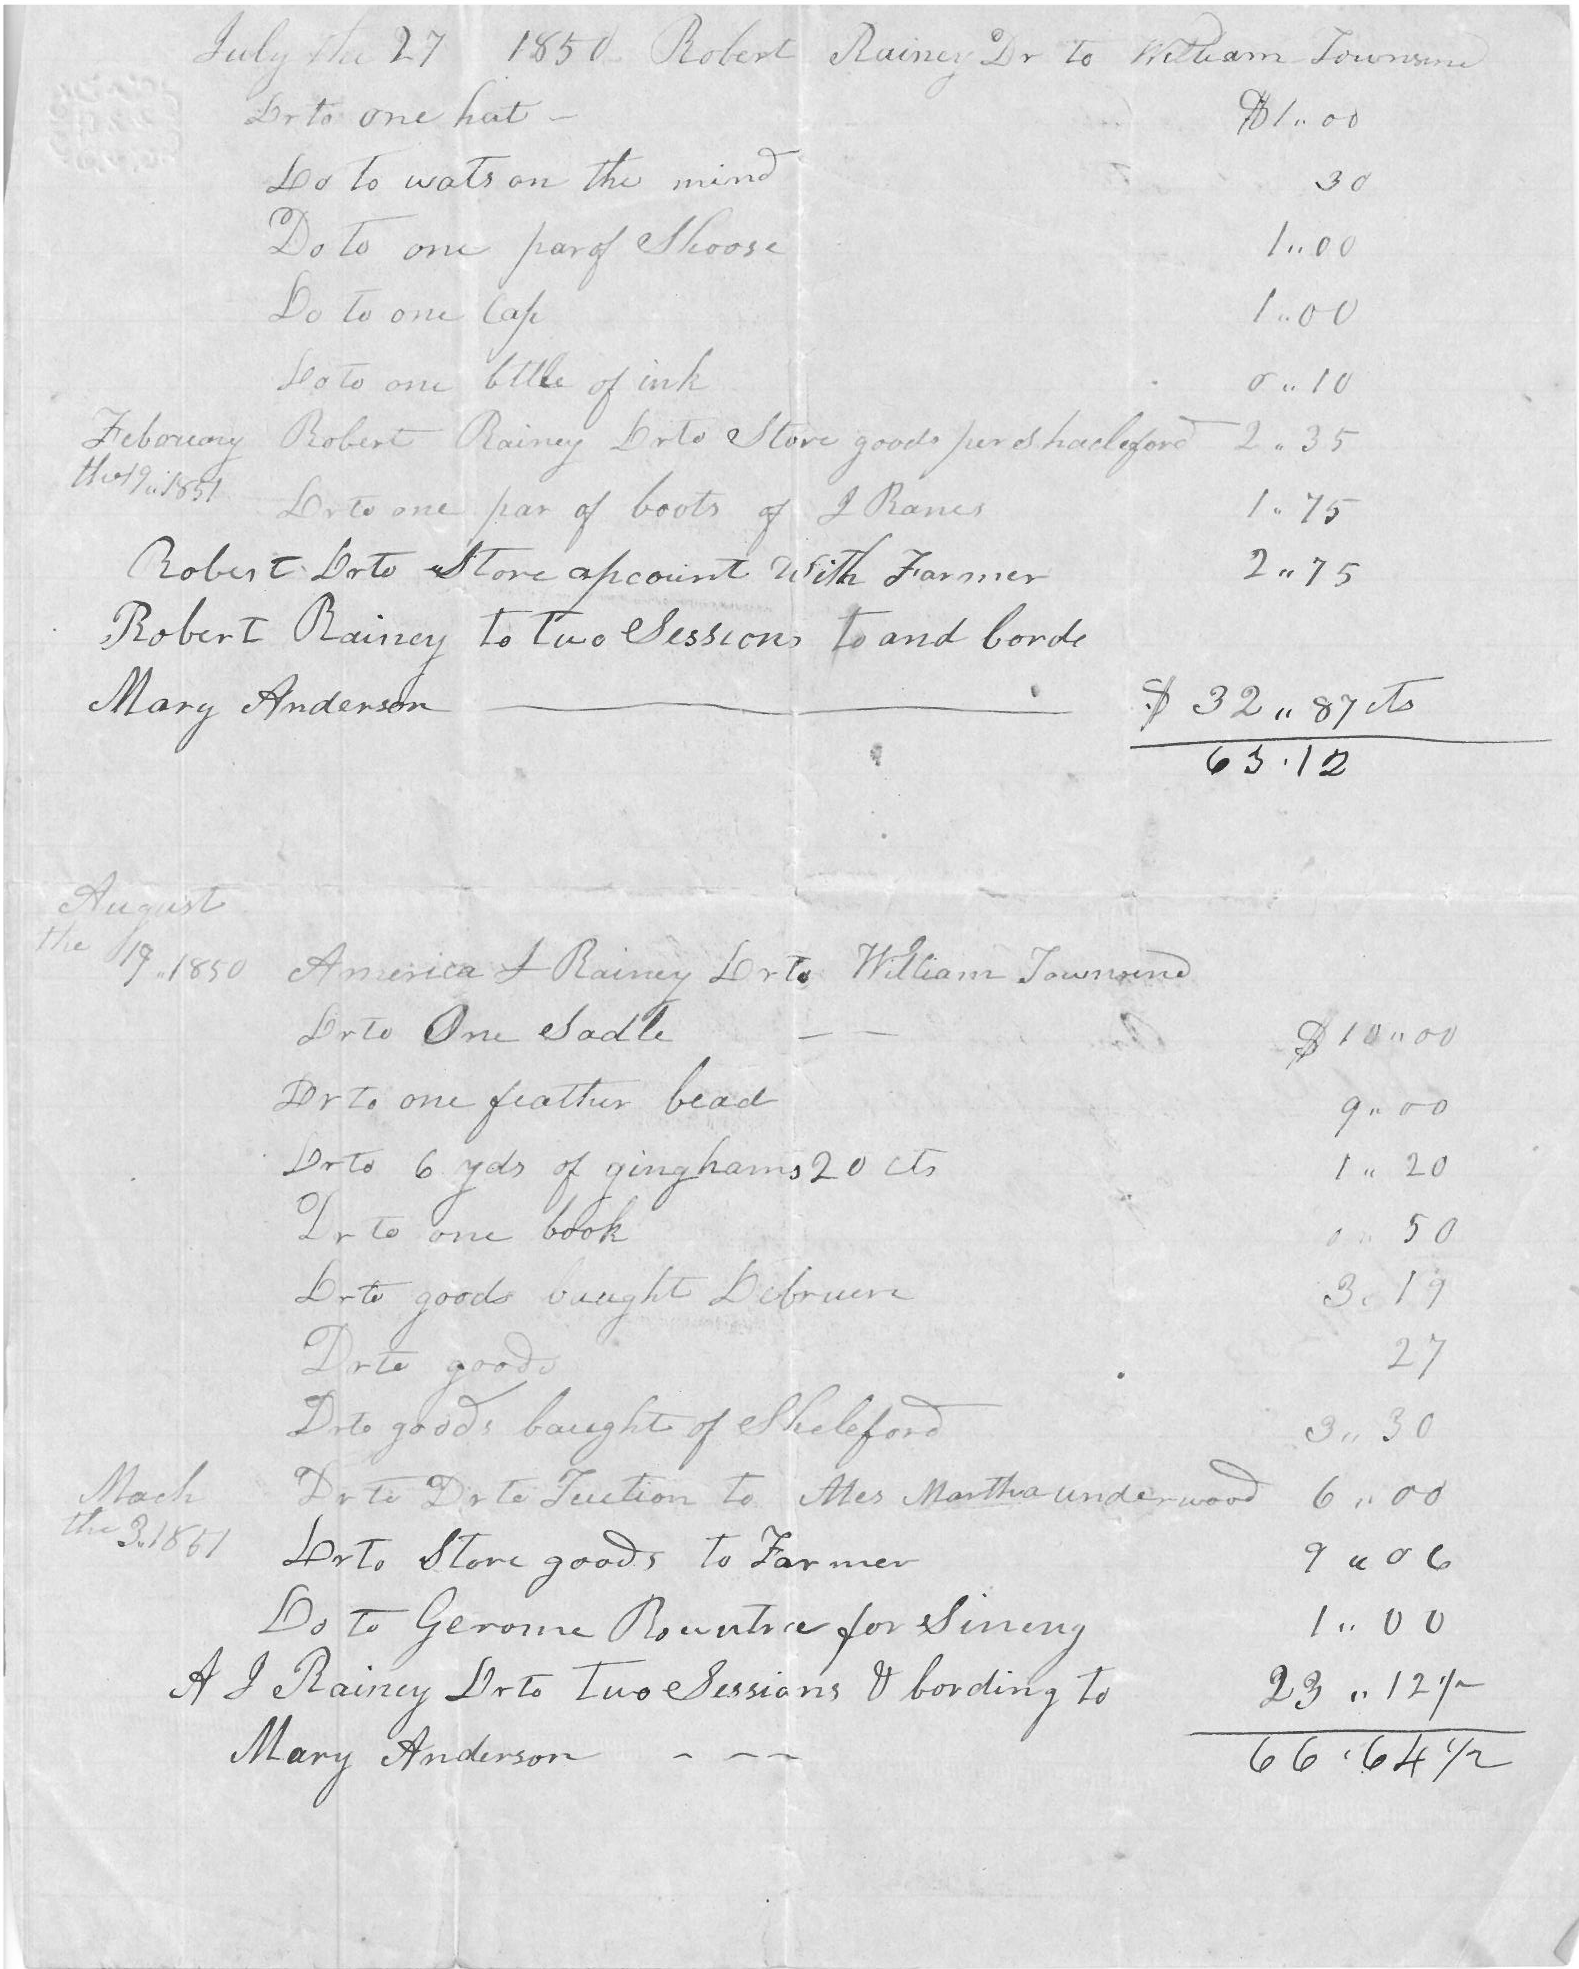 July the 27 1850 Robert Rainey Dr to William Townsend
Dr to one hat - $1,,00
Do to wats on the mind 30
Do to one par of Shoose 1,,00
Do to one Cap 1,,00
Do to one bttle of ink 0,,10
Febouary Robert Rainey Dr to Store goods per Shacleford 2,,35
the 19,,1851
Dr to one par of boots of J Ranes 1,,75
Robert Dr to Store apcount With Farmer 2,,75
Robert Rainey to two Sessions to and borde
Mary Anderson $ 32,,87 cts
63.12
August
the 19,,1850 America J Rainey Dr to William Townsend
Dr to One Sadle - - $10,,00
Dr to one feather bead 9,,00
Dr to 6 yds of ginghams 20 cts 1,,20
Dr to one book 0,,50
Dr to goods baught Debruere 3,,19
Dr to goods 27
Dr to goods baught of Sheleford 3,,30
Mach Dr to Dr to Tuetion to Mes Martha underwood 6,,00
the 3,,1851
Dr to Store goods to Farmer 9,,06
Do to Gerome Rountree for Sineng 1,,00
A J Rainey Dr to two Sessions & bording to 23,,12 1/2
Mary Anderson - - - 66.64 1/2